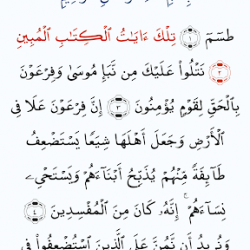 طسٓمٓ ۝١ تِلْكَ ءَايَٰتُ ٱلْكِتَٰبِ ٱلْمُبِينِ
۝٢ نَتْلُوا۟ عَلَيْكَ مِن نَّبَإِ مُوسَىٰ وَفِرْعَوْنَ
بِٱلْحَقِّ لِقَوْمٍ يُؤْمِنُونَ ۝٣ إِنَّ فِرْعَوْنَ عَلَا فِى
ٱلْأَرْضِ وَجَعَلَ أَهْلَهَا شِيَعًا يَسْتَضْعِفُ
طَآئِفَةً مِّنْهُمْ يُذَبِّحُ أَبْنَآءَهُمْ وَيَسْتَحْىِۦ
نِسَآءَهُمْ ۚ إِنَّهُۥ كَانَ مِنَ ٱلْمُفْسِدِينَ ۝٤
وَنُرِيدُ أَن نَّمُنَّ عَلَى ٱلَّذِينَ ٱسْتُضْعِفُوا۟ فِى